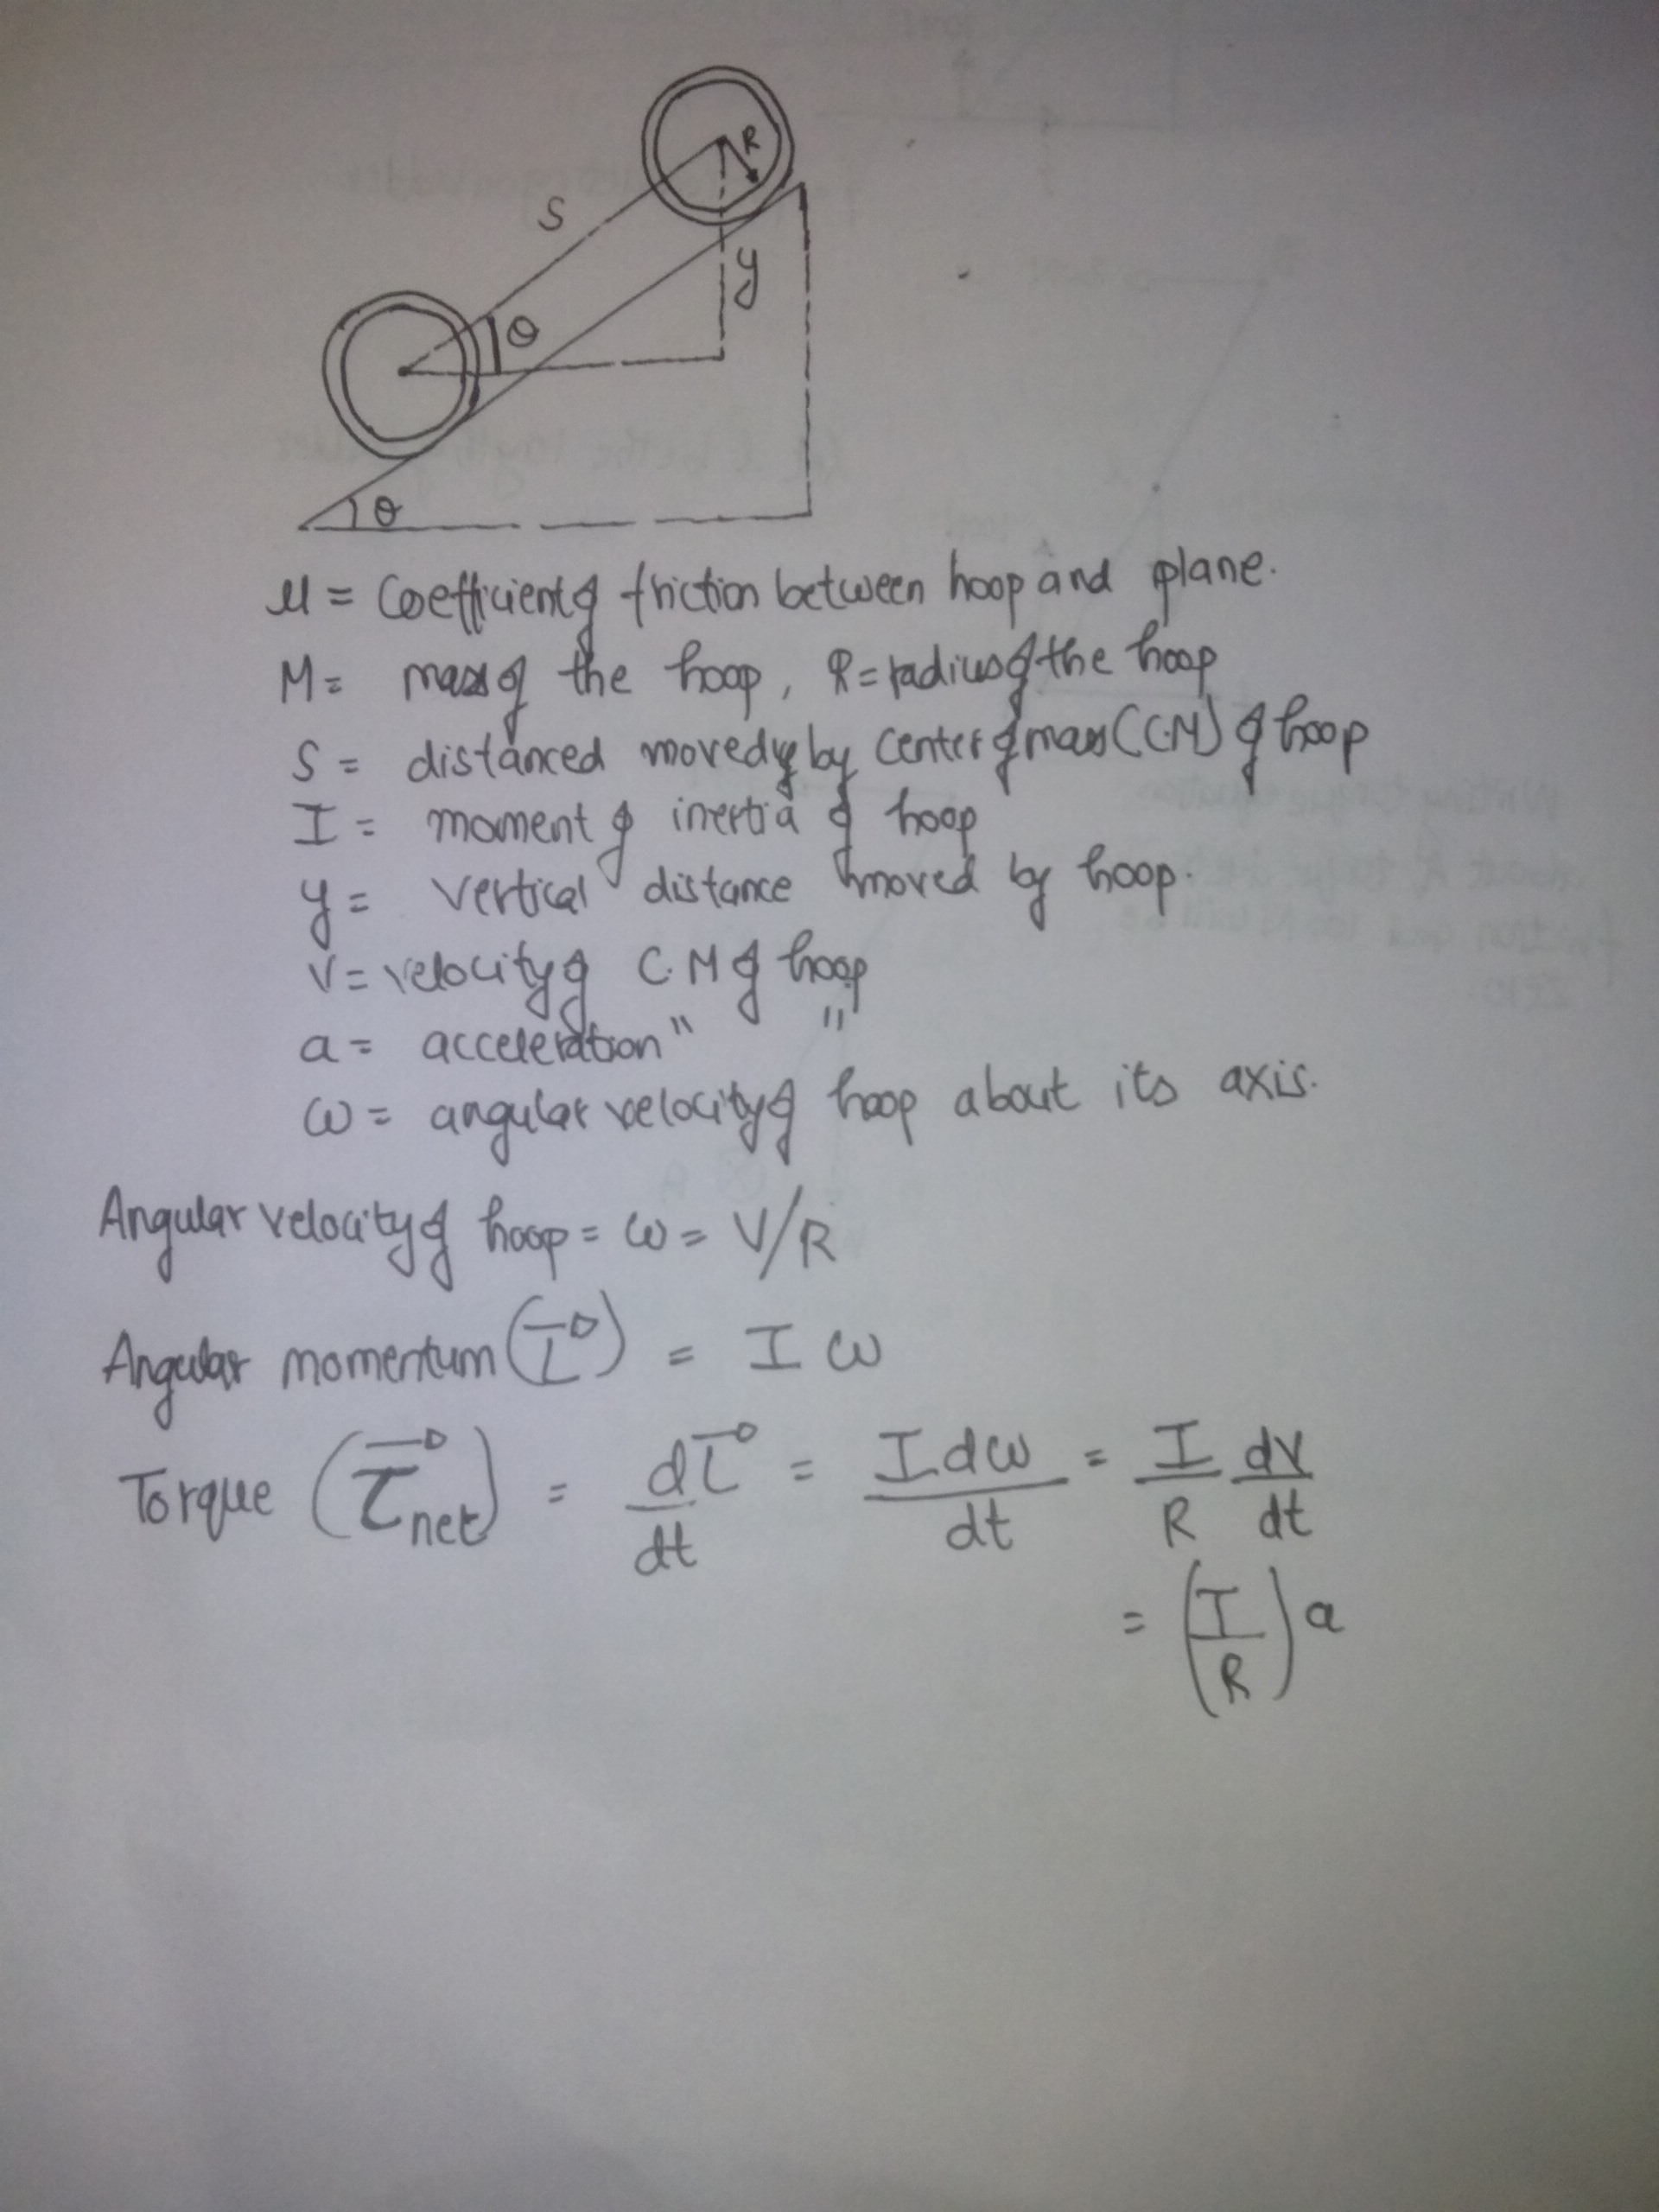 R
S
y
θ
θ
μ = Coefficient of friction between hoop and plane.
M = mass of the hoop, R = radius of the hoop
S = distanced moved by center of mass (C.M) of hoop
I = moment of inertia of hoop
y = vertical distance moved by hoop.
V = velocity of C.M of hoop
a = acceleration " "
ω = angular velocity of hoop about its axis.
Angular velocity of hoop = ω = V/R
Angular momentum (L⃗) = I ω
Torque (τ⃗net) = dL⃗/dt = I dω/dt = I/R dV/dt
= (I/R) a